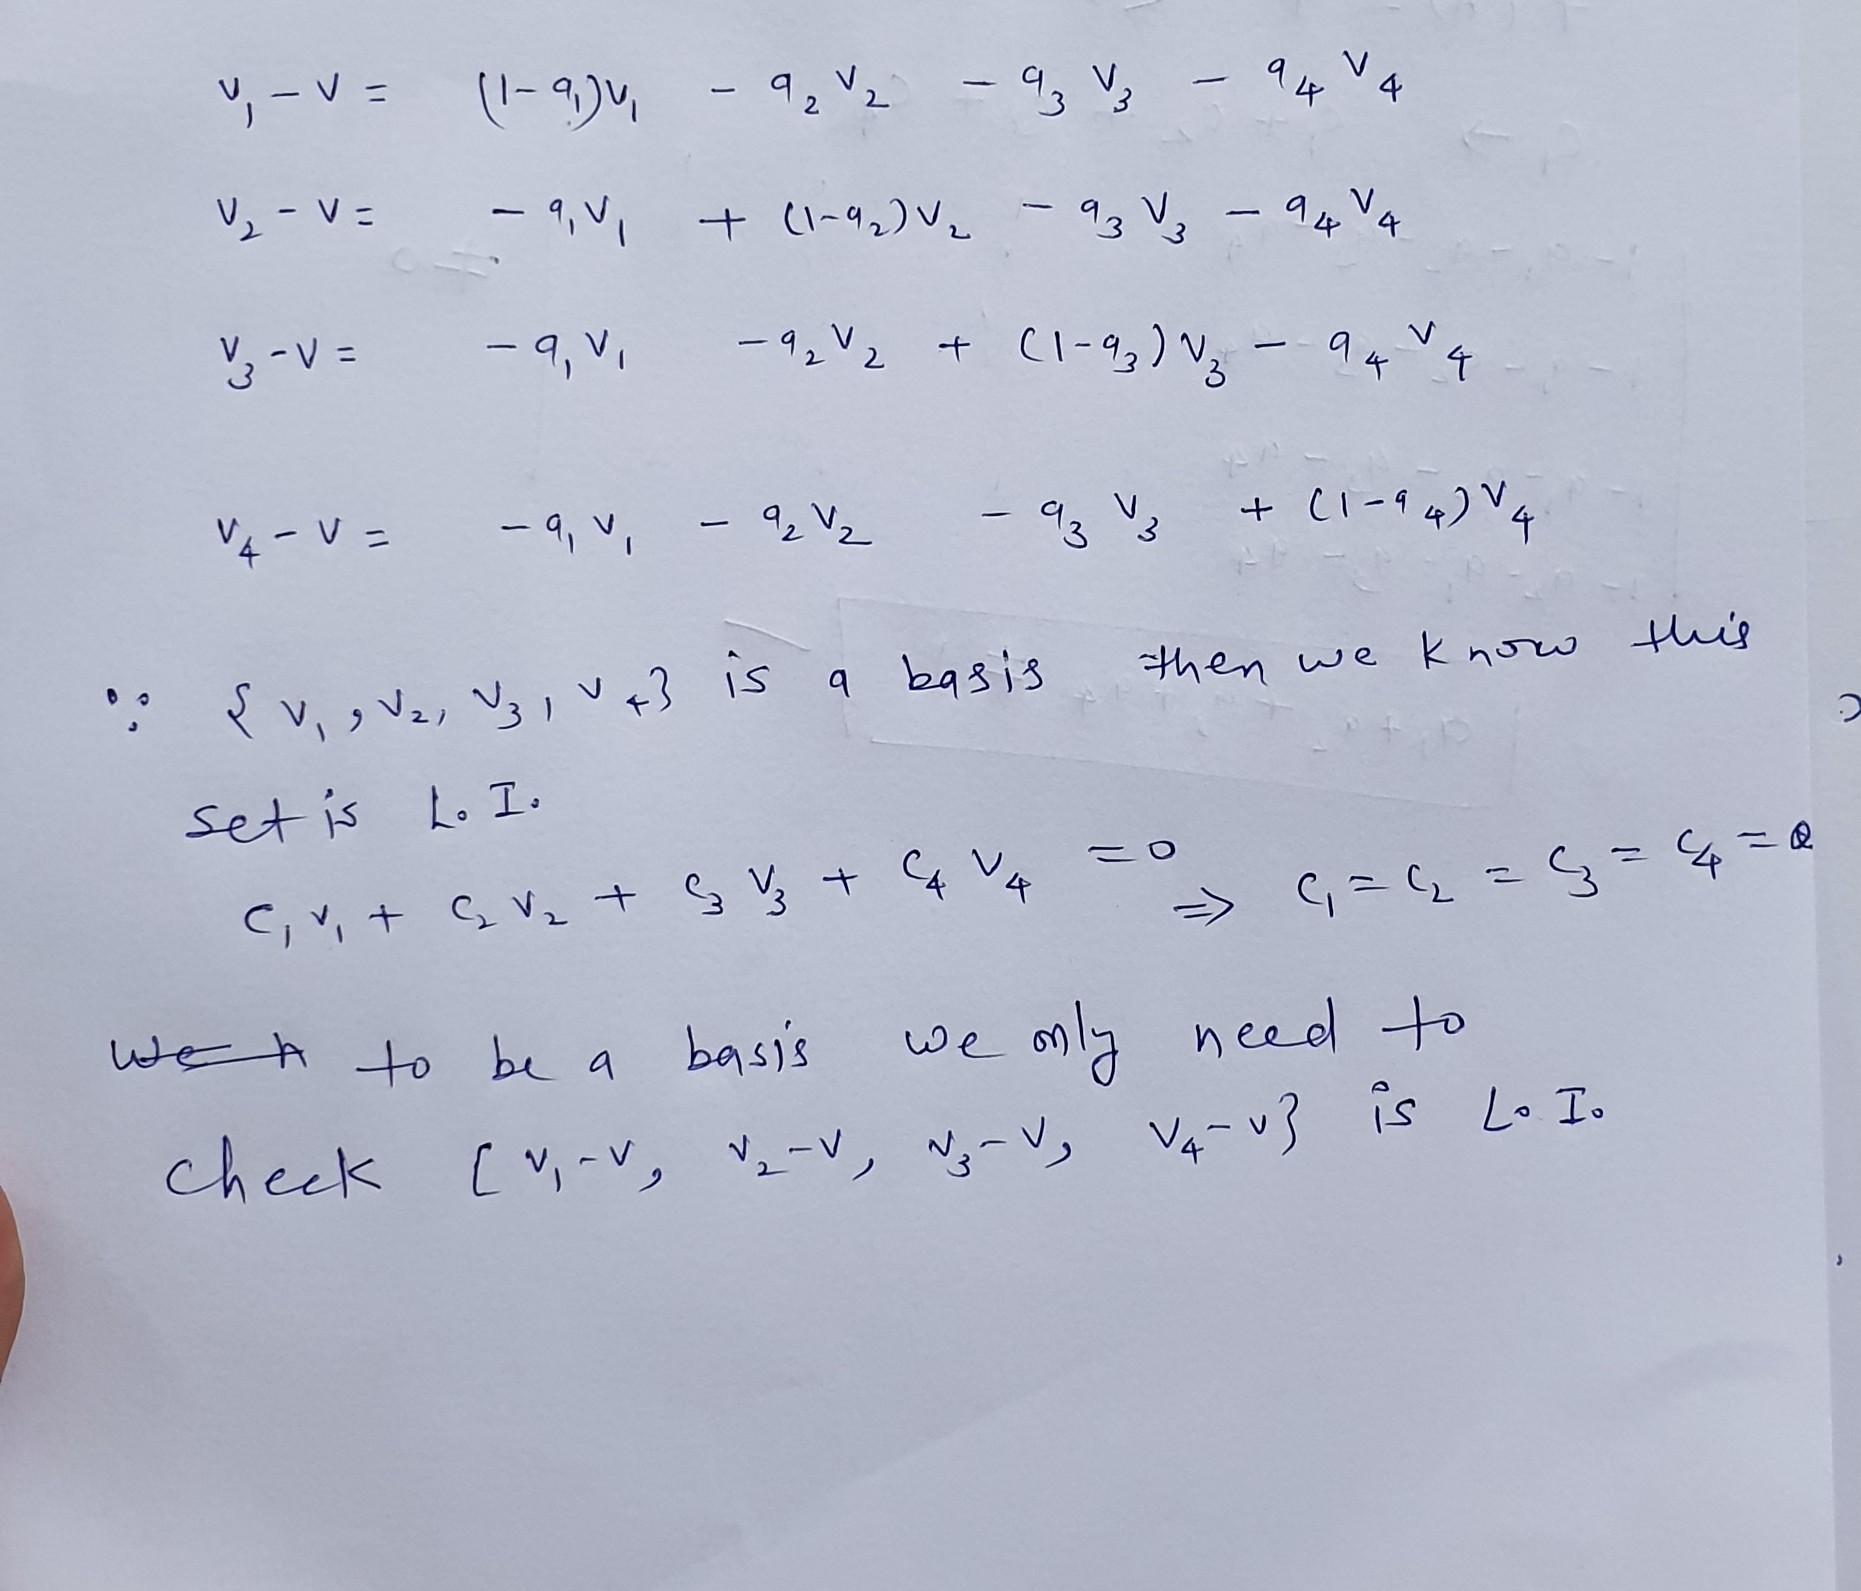 v₁ - v = (1-a₁)v₁ - a₂v₂ - a₃v₃ - a₄v₄
v₂ - v = - a₁v₁ + (1-a₂)v₂ - a₃v₃ - a₄v₄
v₃ - v = - a₁v₁ - a₂v₂ + (1-a₃)v₃ - a₄v₄
v₄ - v = - a₁v₁ - a₂v₂ - a₃v₃ + (1-a₄)v₄
∵ {v₁, v₂, v₃, v₄} is a basis then we know this
set is L.I.
c₁v₁ + c₂v₂ + c₃v₃ + c₄v₄ = 0 ⇒ c₁ = c₂ = c₃ = c₄ = 0
to be a basis we only need to
check [v₁-v, v₂-v, v₃-v, v₄-v} is L.I.